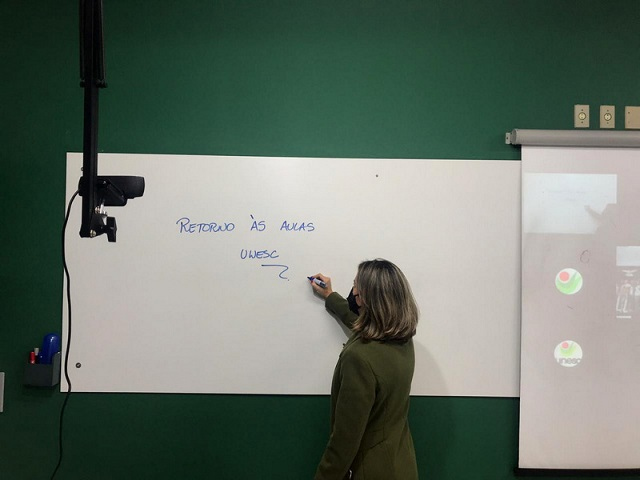 RETORNO ÀS AULAS
UNESC